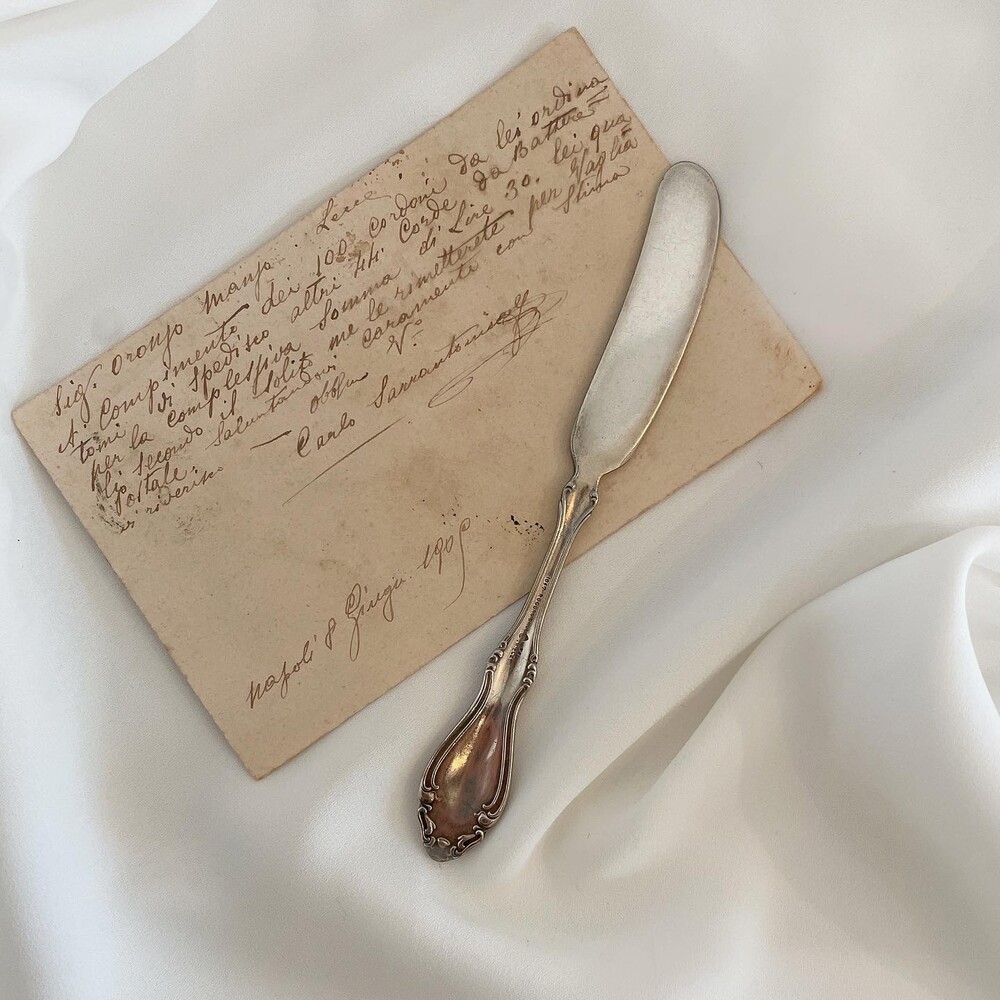 Sig. Oronzo Manzo Lecce
A compimento dei 100 cordoni da lei ordina
tomi di spedisco altri 44 Corde da Battere
per la complessiva Somma di Lire 30. lei qua
li secondo il solito me le rimetterete per Vaglia
postale. Salutandovi caramente con stima
vi riverisco
Carlo Sarrantonio
Napoli 8 Giugn. 1905